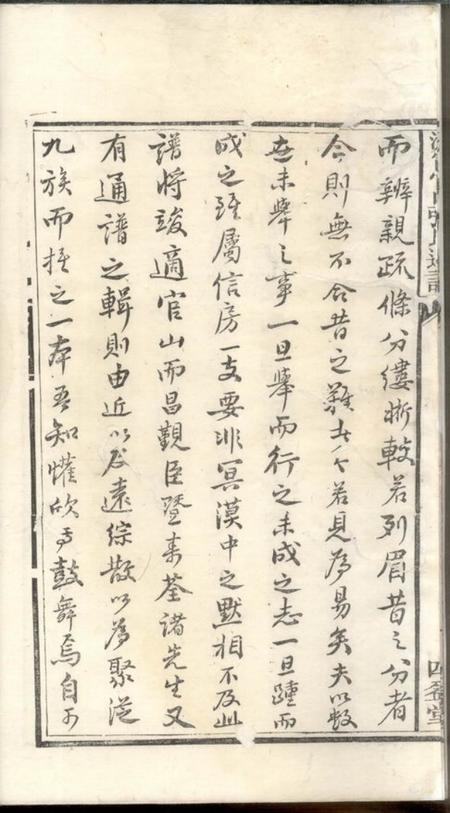 而辨親疏條分縷晰較若列眉昔之分者
今則無不合昔之難者今若見為易矣夫以數
世未舉之事一旦舉而行之未成之志一旦踵而
成之雖屬信房一支要非冥漠中之默相不及此
譜將竣適官山而昌觀臣暨來荃諸先生又
有通譜之輯則由近以及遠綜散以為聚從
九族而推之一本吾知懽欣而鼓舞焉自不